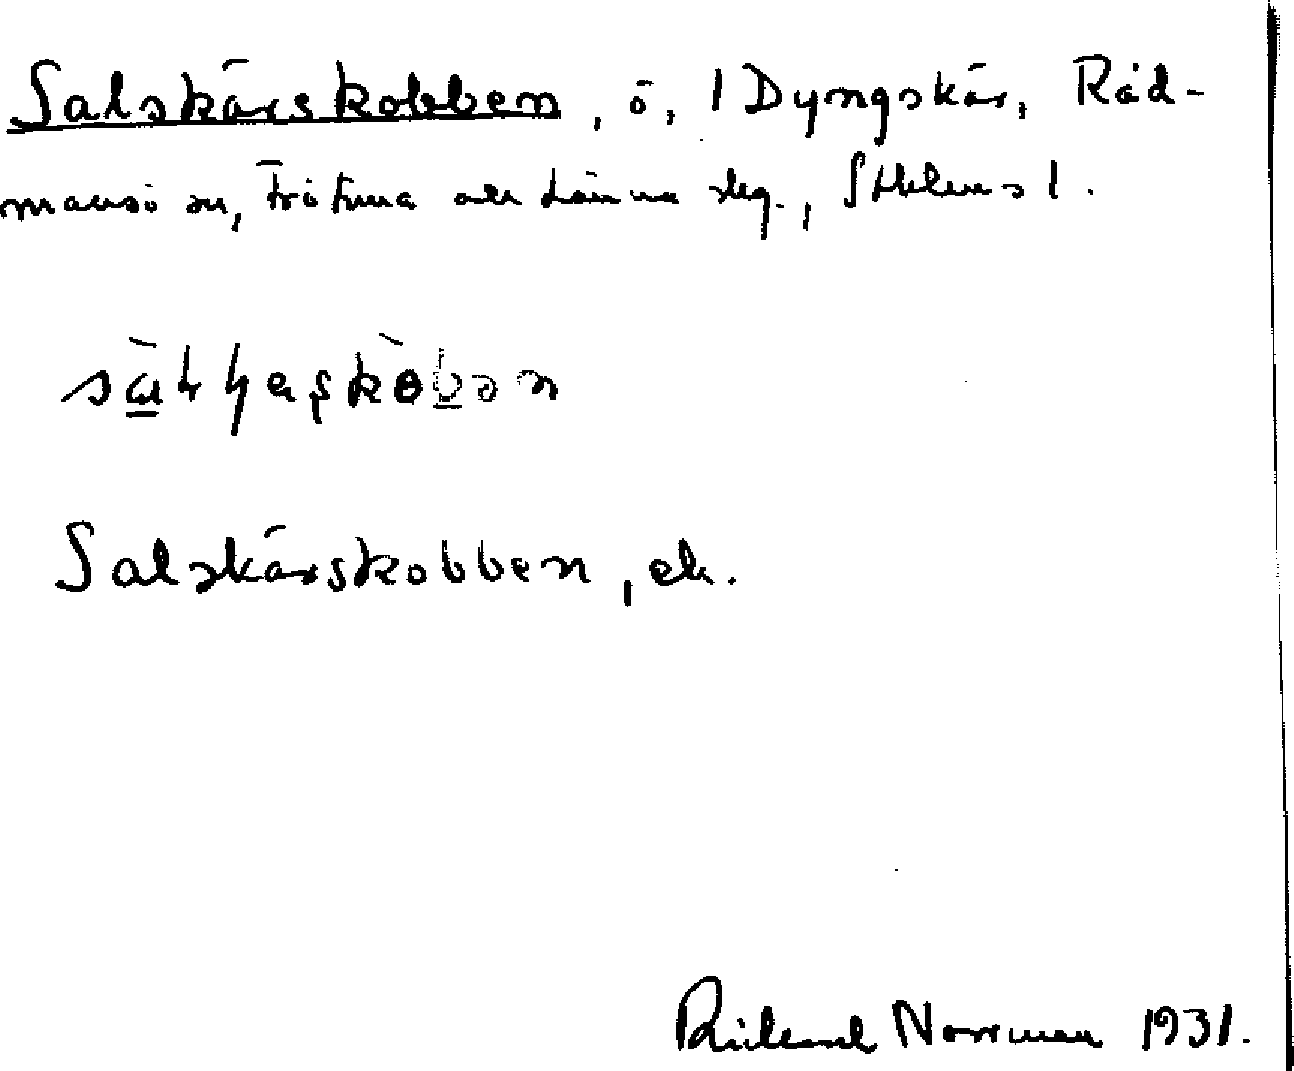 Salskärskobben, ö, 1 Dyngskär, Råd-
mansö sn, Frötuna och Länna skg., Sthlms l.
Salskärskobben, ek.
Rickard Norrman 1931.